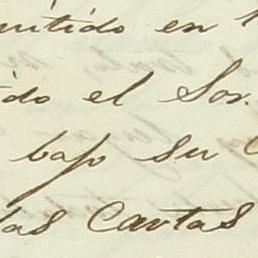 mitido en
ido el Sor.
bajo su
las Cartas